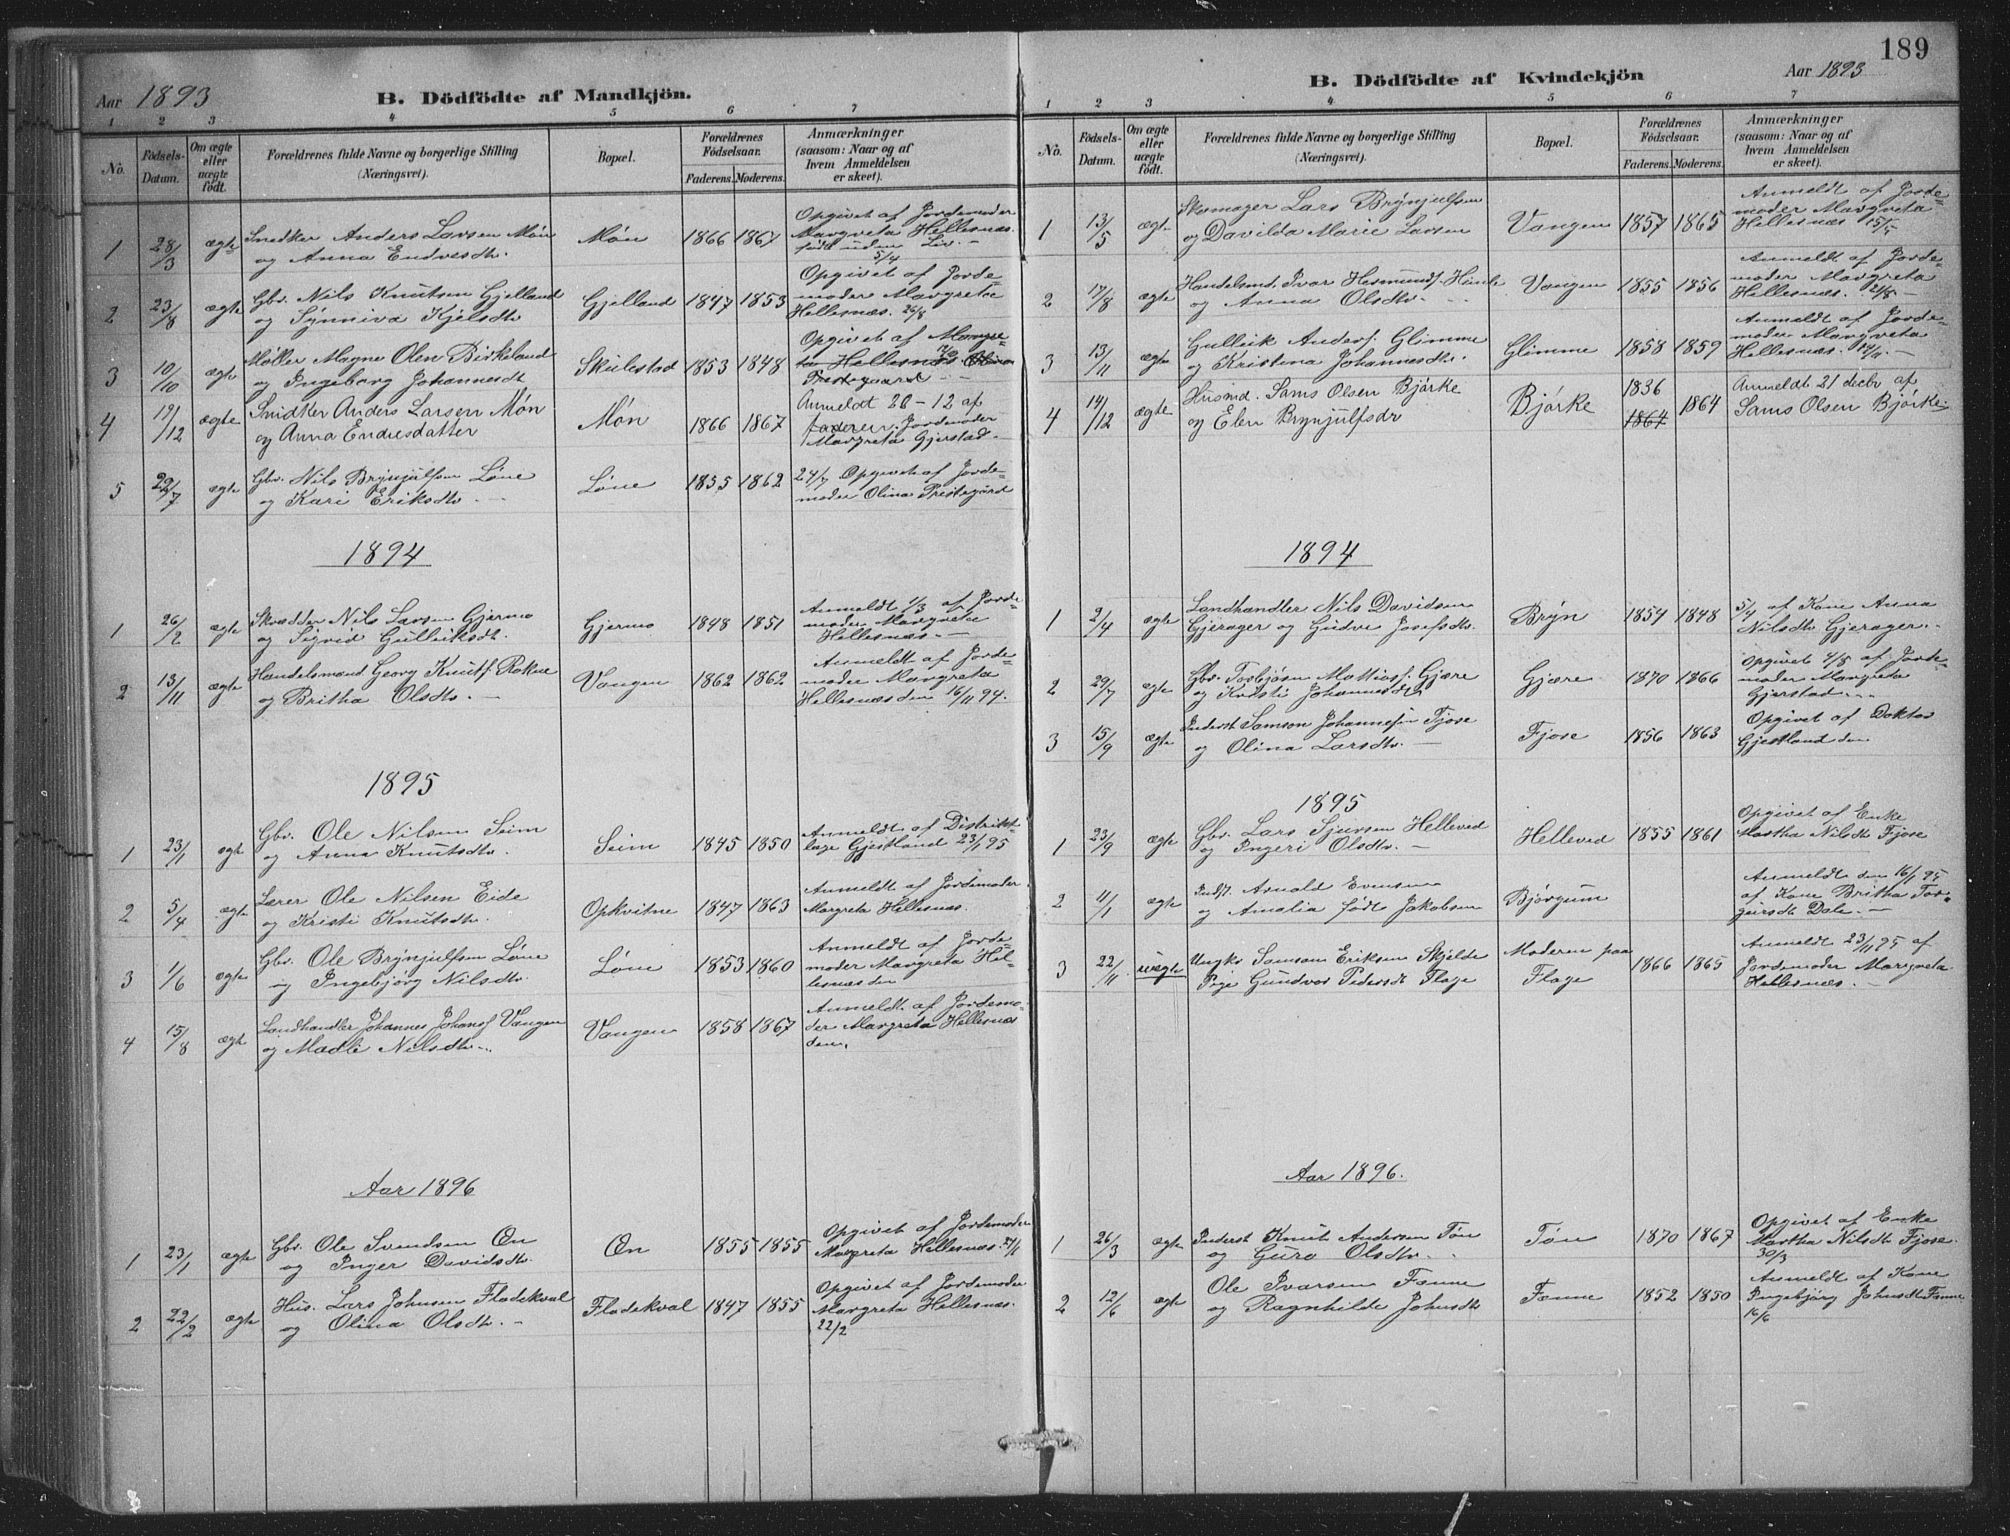 Aar 1893
B. Dödfödte af Mandkjön.
1 2 3 4 5 6 7
No.
Födsels-
Datum.
Om ægte
eller
uægte
födt.
Forældrenes fulde Navne og borgerlige Stilling
(Næringsvei).
Bopæl.
Forældrenes
Födselsaar.
Faderens. Moderens.
Anmærkninger
(saasom: Naar og af
hvem Anmeldelsen
er skeet).
1 28/3 ægte Snedker Anders Larsen Møn
og Anna Endresdtr.
Møn 1866 1867
Opgivet af Jordemoder
Margreta Hellesnæs.
født uden Liv. –
5/4
2 23/8 ægte Gbr. Nils Knutsen Gjelland
og Synniva Kjelsdtr
Gjelland 1847 1853
Opgivet af Jorde=
moder Margreta
Hellesnæs. 26/8
3 10/10 ægte Møller Magne Olsen Birkeland
og Ingeborg Johannesdt
Skulestad 1853 1848
Opgivet af Margre-
ta Hellesnæs Olina
Prestegaard – –
4 19/12 ægte Snidker Anders Larsen Møn
og Anna Endresdatter
Møn 1866 1867
Anmeldt 20-12 af
faderen. Jordemoder
Margreta Gjerstad.
5 22/7 ægte Gbr. Nils Brynjulfsen Løne
og Kari Eriksdtr. –
Løne 1855 1862
24/7 Opgivet af Jorde=
moder Olina Prestegård
1894
1 26/2 ægte Skrædder Nils Larsen Gjermo
og Sigrid Gulleiksdt.
Gjermo 1848 1851
Anmeldt 1/3 af Jorde=
moder Margreta
Hellesnæs. –
2 13/11 ægte Handelsmand Georg Knuts. Rokne
og Britha Olsdtr. –
Vangen 1862 1862
Anmeldt af Jorde=
moder Margreta
Hellesnæs den 16/11 94.
1895
1 23/1 ægte Gbr. Ole Nilsen Seim
og Anna Knutsdtr.
Seim 1845 1850
Anmeldt af Distrikt-
læge Gjestland 23/1 95
2 5/4 ægte Lærer Ole Nilsen Eide
og Kristi Knutsdtr.
Opkvitne 1847 1863
Anmeldt af Jordemoder
Margreta Hellesnæs.
3 1/6 ægte Gbr. Ole Brynjulfsen Løne
og Ingebjørg Nilsdtr.
Løne 1853 1860
Anmeldt af Jorde=
moder Margreta Hel-
lesnæs den
4 15/8 ægte Landhandler Johannes Johans. Vangen
og Madli Nilsdtr. –
Vangen 1858 1867
Anmeldt af Jordemo=
der Margreta Hellesnæs
den.
Aar 1896
1 23/1 ægte Gbr. Ole Svendsen Øn
og Inger Davidsdtr.
Øn 1855 1855
Opgivet af Jordemoder
Margreta Hellesnæs. 27/1
2 22/2 ægte Hus. Lars Johnsen Fladekval
og Olina Olsdtr. –
Fladekval 1847 1855
Opgivet af Jordemoder
Margreta Hellesnæs.
22/2
189
B. Dödfödte af Kvindekjön
Aar 1893
1 2 3 4 5 6 7
No.
Födsels-
Datum.
Om ægte
eller
uægte
födt.
Forældrenes fulde Navne og borgerlige Stilling
(Næringsvei).
Bopæl.
Forældrenes
Födselsaar.
Faderens. Moderens.
Anmærkninger
(saasom: Naar og af
hvem Anmeldelsen
er skeet).
1 13/5 ægte Skomager Lars Brynjulfsen
og Davilda Marie Larsen
Vangen 1857 1865
Anmeldt af Jorde=
moder Margreta
Hellesnæs 15/5
2 17/8 ægte Handelsmd. Ivar Hermunds. Himle
og Anna Olsdtr.
Vangen 1855 1856
Anmeldt af Jorde=
moder Margreta
Hellesnæs. 21/8 –
3 13/11 ægte Gulleik Anders. Glimme
og Kristina Johannesdtr.
Glimme 1858 1859
Anmeldt af Jorde=
moder Margreta
Hellesnæs. 14/11 –
4 14/12 ægte Husmd. Sams Olsen Bjørke
og Elen Brynjulfsdr
Bjørke 1836 1864 1864
Anmeldt 21 decbr af
Sams Olsen Bjørke.
1894
1 2/4 ægte Landhandler Nils Davidsen
Gjerager og Gudve Josefsdtr.
Bryn 1854 1848
5/4 af Kone Anna
Nilsdtr Gjerager.
2 29/7 ægte Gbr. Torbjørn Mattias. Gjære
og Kristi Johannesdtr
Gjære 1870 1866
Opgivet 4/8 af Jorde=
moder Margreta
Gjerstad.
3 15/9 ægte Inderst Samson Johannesen Fjose
og Olina Larsdtr. –
Fjose 1856 1863
Opgivet af Doktor
Gjestland den
1895
1 23/9 ægte Gbr. Lars Sjursen Helleved
og Ingeri Olsdtr. –
Helleved 1855 1861
Opgivet af Enke
Martha Nilsdtr Fjose
2 11/1 ægte Inds. Arnold Evensen
og Amalia født Jakobsen
Bjørgum
Anmeldt den 16/1 95
af Kone Britha Tor=
geirsdt Dale. –
3 22/11 uægte Ungk. Samson Eriksen Skjelde
Pige Gundvor Pedersdt Flage
Moderen paa
Flage
1866 1865
Anmeldt 23/11 95 af
Jordemoder Margreta
Hellesnæs. –
Aar 1896.
1 26/3 ægte Inderst Knut Andersen Tøn
og Guro Olsdtr.
Tøn 1870 1867
Opgivet af Enke
Martha Nilsdtr Fjose.
30/3
2 12/6 ægte Ole Ivarsen Fenne
og Ragnhilde Johnsdtr
Fenne 1852 1850
Anmeldt af Kone
Ingebjørg Johnsdtr Fenne
16/6